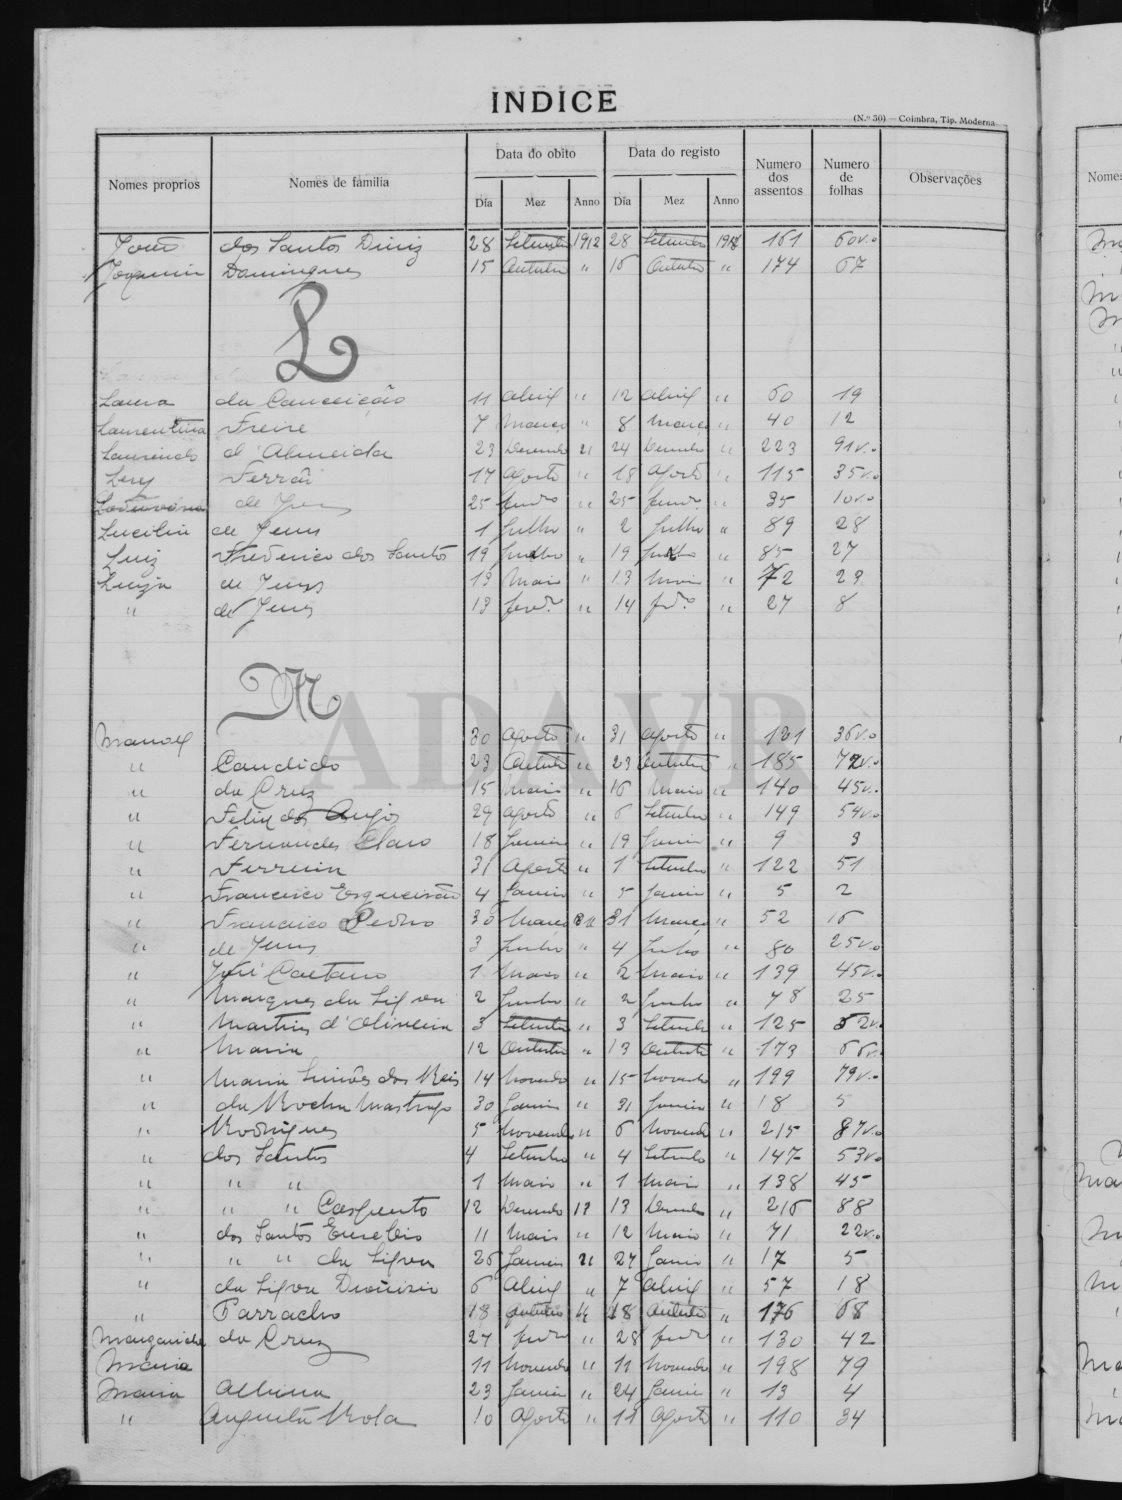 INDICE
(N.º 30) — Coimbra, Tip. Moderna
Nomes proprios Nomes de familia Data do obito Data do registo Numero dos assentos Numero de folhas Observações
Dia Mez Anno Dia Mez Anno
João dos Santos Diniz 28 Setembro 1912 28 Setembro 1912 161 60v.o
Joaquim Domingues 15 Outubro " 16 Outubro " 174 67
L
Laura da Conceição 11 Abril " 12 Abril " 60 19
Laurentina Freire 7 Março " 8 Março " 40 12
Laurindo d'Almeida 23 Dezembro 24 Dezembro " 223 91v.o
Ferrão 17 Agosto " 18 Agosto " 115 35v.o
de Jesus 25 fevro " 25 fevro " 35 10v.o
Lucilia de Jesus 1 Julho " 2 Julho " 89 28
Luiz Frederico dos Santos 19 " 19 " 85 27
Luiza de Jesus 13 Maio " 13 Maio " 72 23
" de Jesus 13 fevro " 14 fevro " 27 8
M
ADAVR
Manoel 30 Agosto " 31 Agosto " 121 36v.o
" Candido 23 Outubro " 23 Outubro " 185 72v.o
" da Cruz 15 Maio " 16 Maio " 140 45v.o
" Felix dos Anjos 29 Agosto " 6 Setembro " 149 54v.o
" Fernandes Claro 18 Janeiro " 19 Janeiro " 9 3
" Ferreira 31 Agosto " 1 Setembro " 122 51
" Francisco Esgueirão 4 Janeiro " 5 Janeiro " 5 2
" Francisco Pedro 30 Março " 31 Março " 52 16
" de Jesus 3 Junho " 4 Junho " 80 25v.o
" José Caetano 1 Maio " 2 Maio " 139 45v.o
" Marques da Silva 2 Junho " 2 Junho " 78 25
" Martins d'Oliveira 3 Setembro " 3 Setembro " 125 52v.o
" Maria 12 Outubro " 13 Outubro " 173 66v.o
" Maria Simões dos Reis 14 Novembro " 15 Novembro " 199 79v.o
" da Rocha 30 Janeiro " 31 Janeiro " 18 5
" Rodrigues 5 Novembro " 6 Novembro " 215 87v.o
" dos Santos 4 Setembro " 4 Setembro " 147 53v.o
" " " 1 Maio " 1 Maio " 138 45
" " " 12 Dezembro 13 Dezembro " 216 88
" dos Santos Euzebio 11 Maio " 12 Maio " 71 22v.o
" " " da Silva 26 Janeiro 27 Janeiro " 17 5
" da Silva Dionizio 6 Abril " 7 Abril " 57 18
" Parracho 18 Outubro " 18 Outubro " 176 68
Margarida da Cruz 27 fevro " 28 fevro " 130 42
Maria 11 Novembro " 11 Novembro " 198 79
Maria Albina 23 Janeiro " 24 Janeiro " 13 4
" Augusta Rola 10 Agosto " 11 Agosto " 110 34